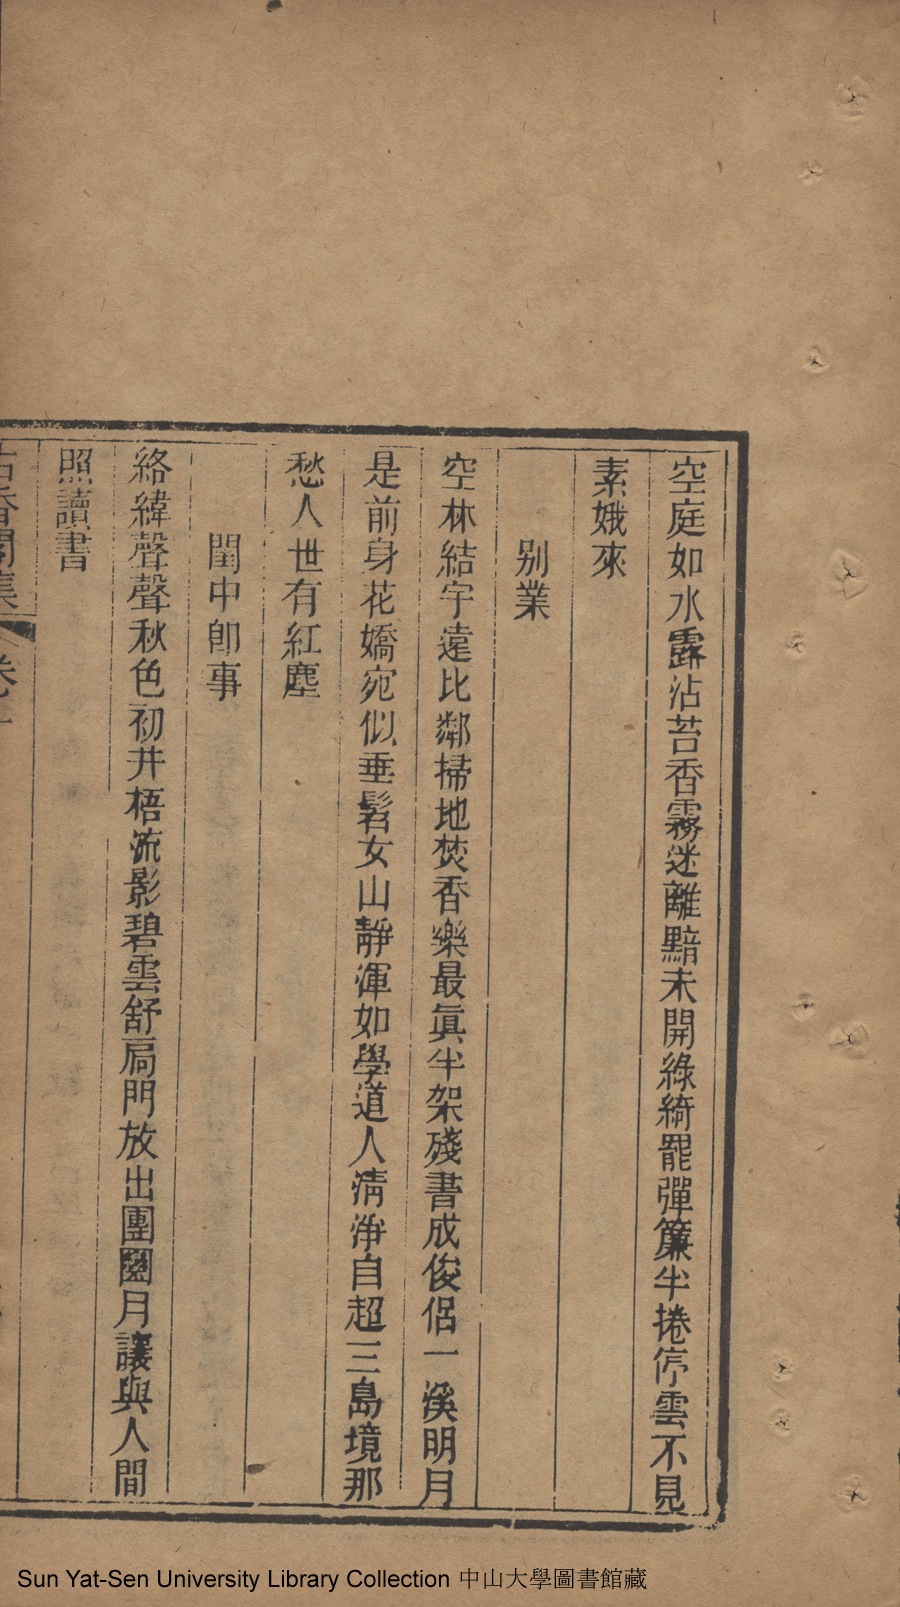 空庭如水露沾苔香霧迷離黯未開綠綺罷彈簾半捲停雲不見
素娥來
別業
空林結宇遠比鄰掃地焚香樂最眞半架殘書成俊侶一溪明月
是前身花嬌宛似垂髫女山靜渾如學道人淸淨自超三島境那
愁人世有紅塵
閨中卽事
絡緯聲聲秋色初井梧流影碧雲舒扃門放出團圞月讓與人間
照讀書
古香閣集
卷二
Sun Yat-Sen University Library Collection 中山大學圖書館藏